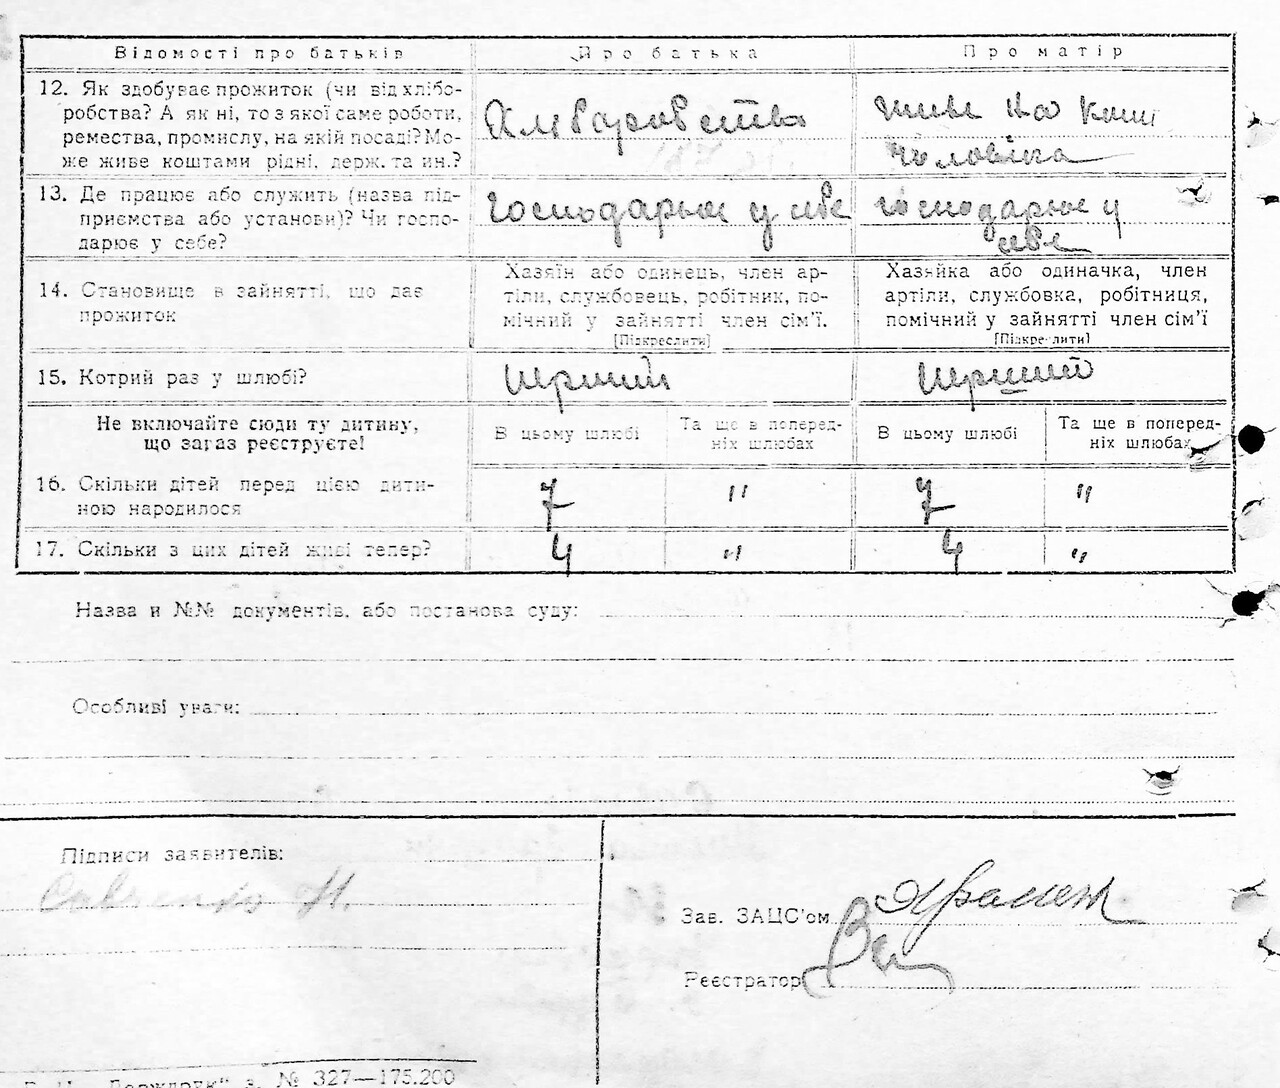 Відомості про батьків
Про батька
Про матір
12. Як здобуває прожиток (чи від хлібо-
робства? А як ні, то з якої саме роботи,
ремества, промислу, на якій посаді? Мо-
же живе коштами рідні, держ. та ин.?
Хліборобство
живе на кошт
чоловіка
13. Де працює або служить (назва під-
приємства або установи)? Чи госпо-
дарює у себе?
господарює у себе
господарює у
себе
14. Становище в зайнятті, що дає
прожиток
Хазяїн або одинець, член ар-
тіли, службовець, робітник, по-
мічний у зайнятті член сім’ї.
[Підкреслити]
Хазяйка або одиначка, член
артіли, службовка, робітниця,
помічний у зайнятті член сім’ї
[Підкреслити]
15. Котрий раз у шлюбі?
перший
перший
Не включайте сюди ту дитину,
що зараз реєструєте!
В цьому шлюбі
Та ще в поперед-
ніх шлюбах
В цьому шлюбі
Та ще в поперед-
ніх шлюбах
16. Скільки дітей перед цією дити-
ною народилося
7 " 7 "
17. Скільки з цих дітей живі тепер?
4 " 4 "
Назва и №№ документів, або постанова суду:
Особливі уваги:
Підписи заявителів:
Савченко
Зав. ЗАЦС’ом
Реєстратор
„Держдрук“ з. № 327—175.200